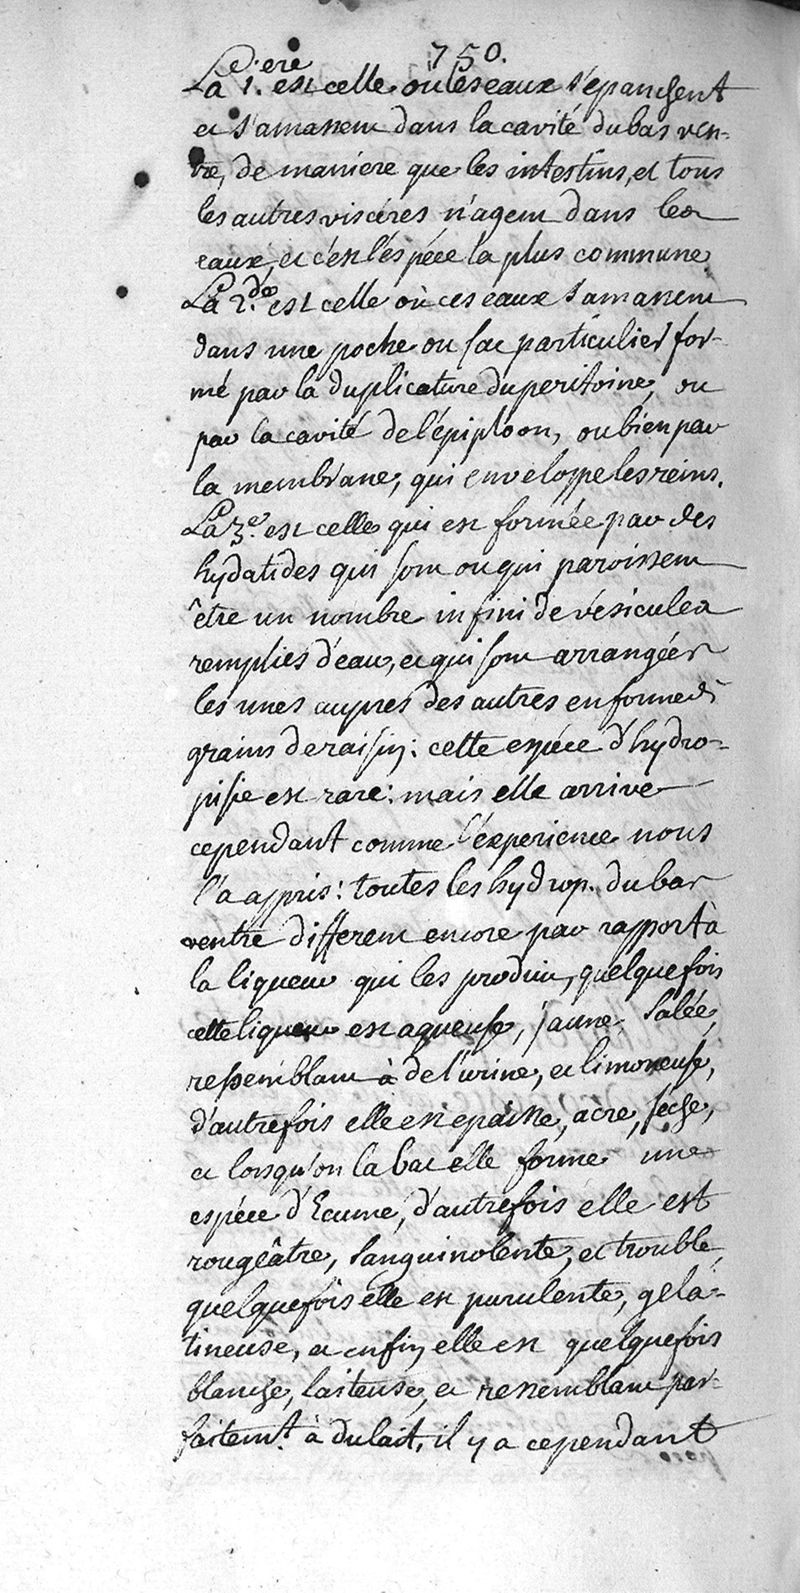 750.
La 1.ere est celle où les eaux s'épanchent
et s'amassent dans la cavité du bas ven-
tre, de maniere que les intestins, et tous
les autres visceres n'agent dans les
eaux, et c'est l'espéce la plus commune.
La 2.de est celle où ces eaux s'amassent
dans une poche ou sac particulier for-
mé par la duplicature du peritoine, ou
par la cavité de l'épiploon, ou bien par
la membrane, qui enveloppe les reins.
La 3.e est celle qui est formée par des
hydatides qui sont ou qui paroissent
être un nombre infini de vésicules
remplies d'eau, et qui sont arrangées
les unes aupres des autres en forme de
grains de raisin: cette espéce d'hydro-
pisie est rare: mais elle arrive
cependant comme l'experience nous
l'a appris: toutes les hydrop. du bas
ventre different encore par rapport à
la liqueur qui les produit, quelquefois
cette liqueur est aqueuse, jaune, salée,
ressemblant à de l'urine, et limoneuse,
d'autrefois elle est epaisse, acre, seche,
et lorsqu'on la bat elle forme une
espéce d'Ecume, d'autrefois elle est
rougeâtre, sanguinolente, et trouble,
quelquefois elle est purulente, gela-
tineuse, et enfin elle est quelquefois
blanche, laiteuse, et ressemblant par-
faitem.t à du lait, il y a cependant